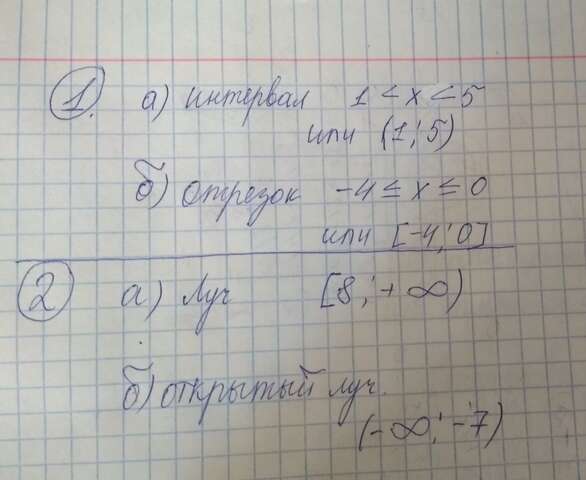 1. а) интервал 1 < x < 5
или (1; 5)
б) отрезок -4 ≤ x ≤ 0
или [-4; 0]
2 а) луч [8; +∞)
б) открытый луч.
(-∞; -7)